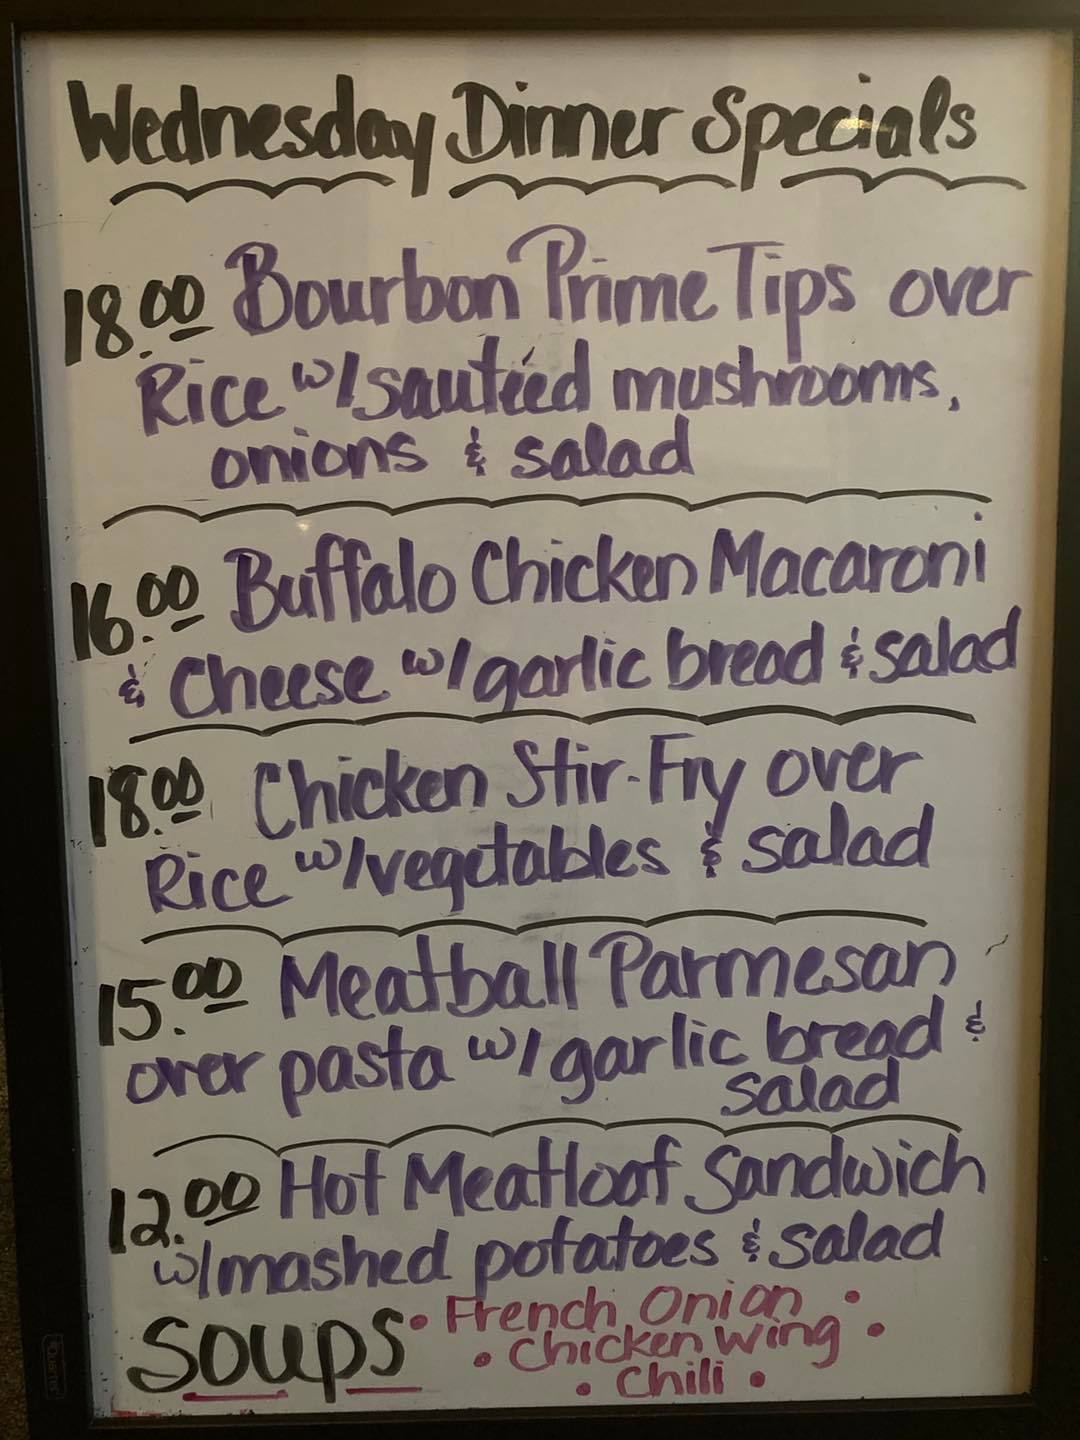 Wednesday Dinner Specials
18.00 Bourbon Prime Tips over
Rice w/sautéed mushrooms,
onions & salad
16.00 Buffalo Chicken Macaroni
& Cheese w/garlic bread & salad
18.00 Chicken Stir-Fry over
Rice w/vegetables & salad
15.00 Meatball Parmesan
over pasta w/garlic bread &
salad
12.00 Hot Meatloaf Sandwich
w/mashed potatoes & salad
SOUPS • French Onion •
• Chicken Wing •
• Chili •
Quartet